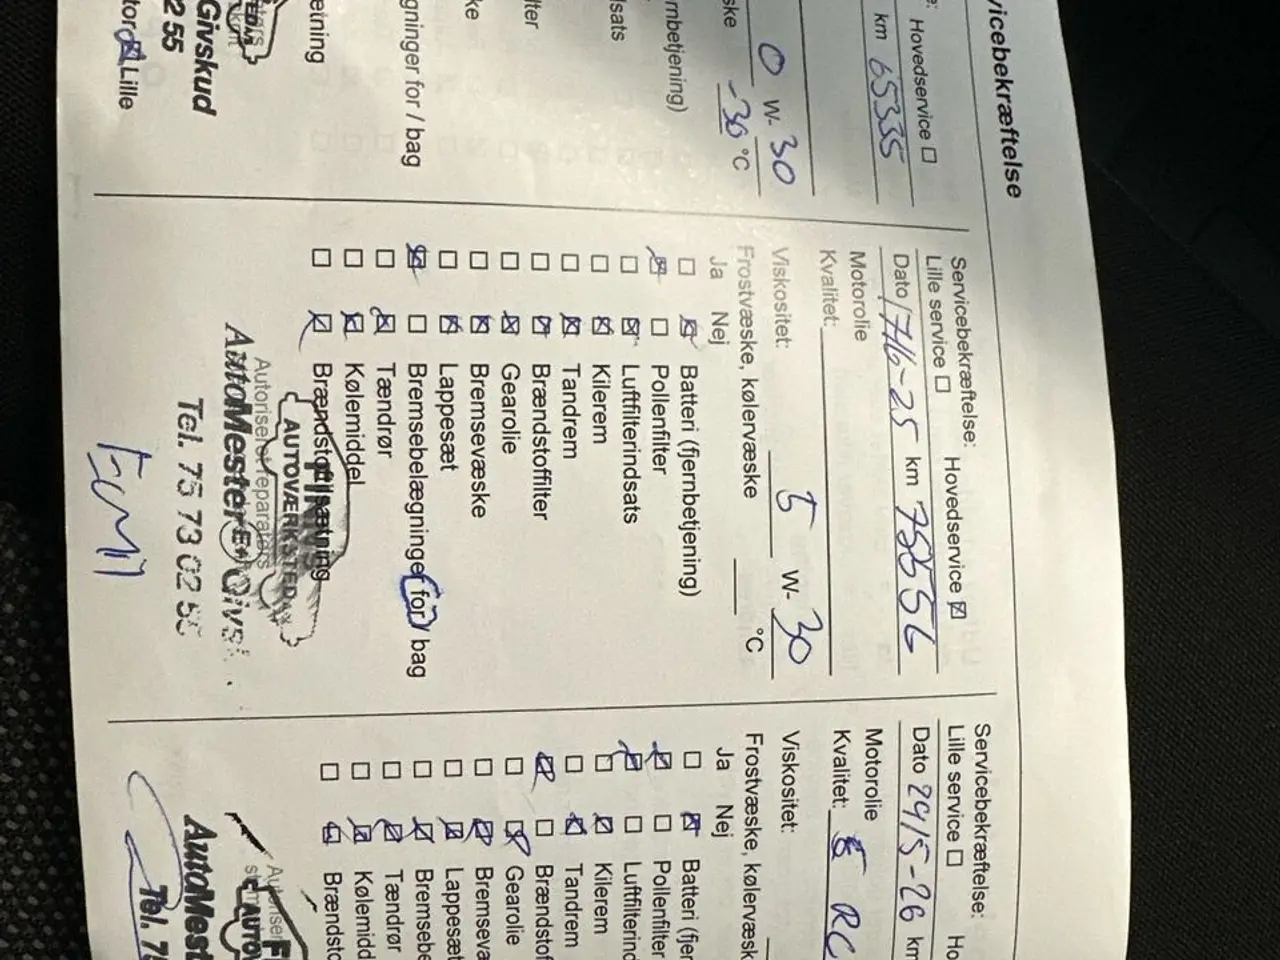 vicebekræftelse
Hovedservice ☐
km 65335
0 W- 30
-30 °C
rnbetjening)
lsats
lter
gninger for / bag
ætning
Givskud
2 55
Lille
Servicebekræftelse:
Lille service ☐ Hovedservice ☒
Dato 17/6-25 km
Motorolie
Kvalitet:
Viskositet: 5 W- 30
Frostvæske, kølervæske °C
Ja Nej
☐ ☒ Batteri (fjernbetjening)
☒ ☐ Pollenfilter
☐ ☒ Luftfilterindsats
☐ ☒ Kilerem
☐ ☒ Tandrem
☐ ☒ Brændstoffilter
☐ ☒ Gearolie
☐ ☒ Bremsevæske
☐ ☒ Lappesæt
☒ ☐ Bremsebelægninger for / bag
☐ ☒ Tændrør
☐ ☒ Kølemiddel
☐ ☒ Brændstoftilsætning
AUTOVÆRKSTED
Autoriseret reparatør
AutoMester
Tel. 75 73 02 55
Emil
Servicebekræftelse:
Lille service ☐ Ho
Dato 29/5-26 km
Motorolie
Kvalitet: RC
Viskositet:
Frostvæske, kølervæsk
Ja Nej
☐ ☒ Batteri (fjer
☒ ☐ Pollenfilter
☒ ☐ Luftfilterind
☐ ☒ Kilerem
☐ ☒ Tandrem
☒ ☐ Brændstof
☐ ☒ Gearolie
☐ ☒ Bremseva
☐ ☒ Lappesæt
☐ ☒ Bremsebe
☐ ☒ Tændrør
☐ ☒ Kølemidd
☐ ☒ Brændsto
Autoriser
AUTOV
AutoMest
Tel. 75